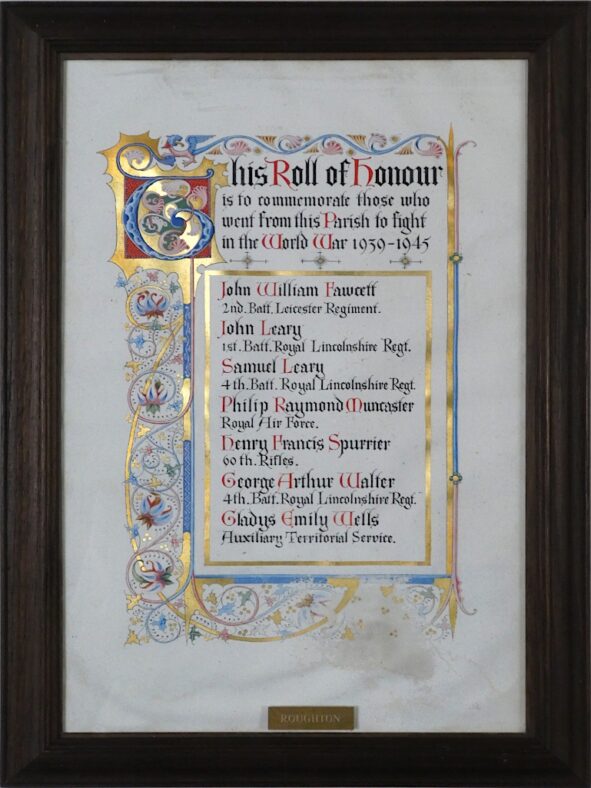 This Roll of Honour
is to commemorate those who
went from this Parish to fight
in the World War 1939-1945
John William Fawcett
2nd. Batt. Leicester Regiment.
John Leary
1st. Batt. Royal Lincolnshire Regt.
Samuel Leary
4th. Batt. Royal Lincolnshire Regt.
Philip Raymond Muncaster
Royal Air Force.
Henry Francis Spurrier
60th. Rifles.
George Arthur Walter
4th. Batt. Royal Lincolnshire Regt.
Gladys Emily Wells
Auxiliary Territorial Service.
ROUGHTON